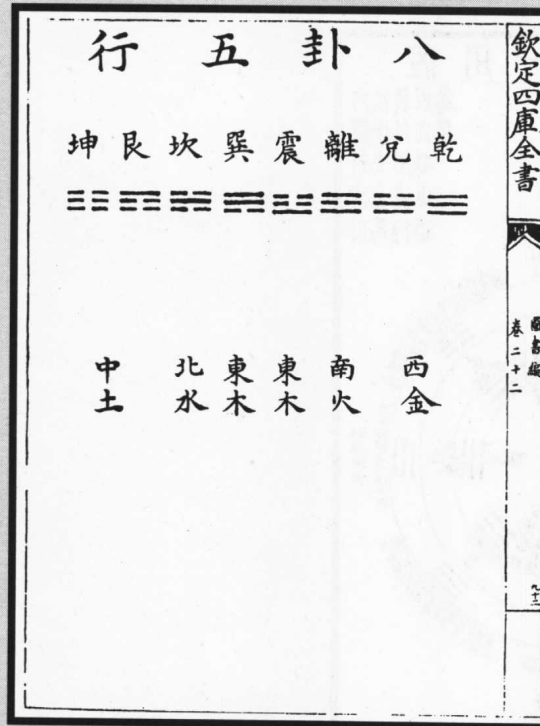 欽定四庫全書
圖書編
卷二十二
八卦五行
乾 兌 離 震 巽 坎 艮 坤
西金
南火
東木
東木
北水
中土